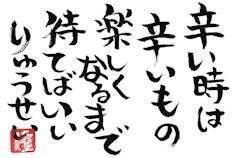 辛い時は
辛いもの
楽しく
なるまで
待てばいい
りゅうせい